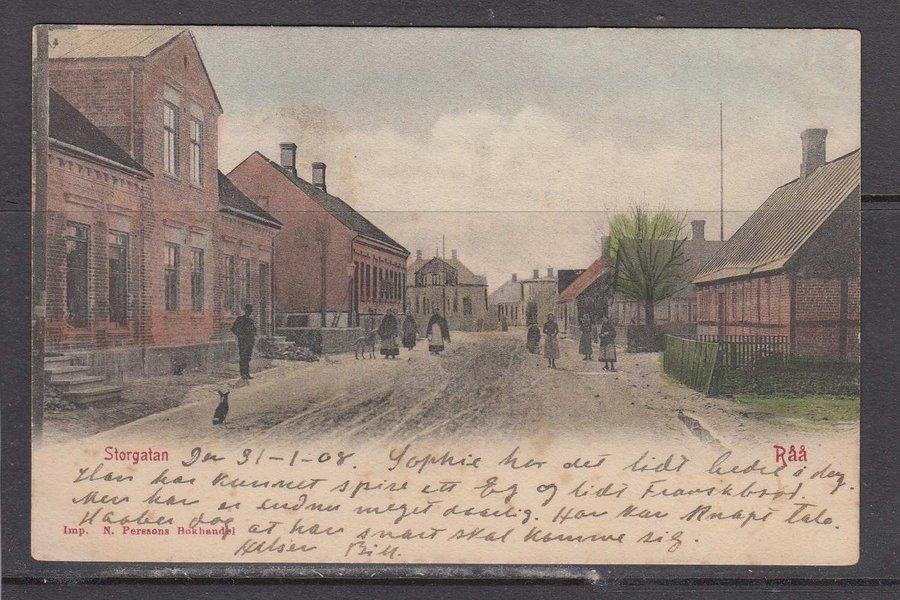 Storgatan
Råå
Den 31-1-08. Sophie har det lidt bedre i dag.
Han har kunnet spise ett Eg og lidt Franskbrød.
Men har er endnu meget daarlig. Han kan knapt tale.
Haaber dog at han snart skal komme sig.
Hilsen Bill.
Imp. N. Perssons Bokhandel